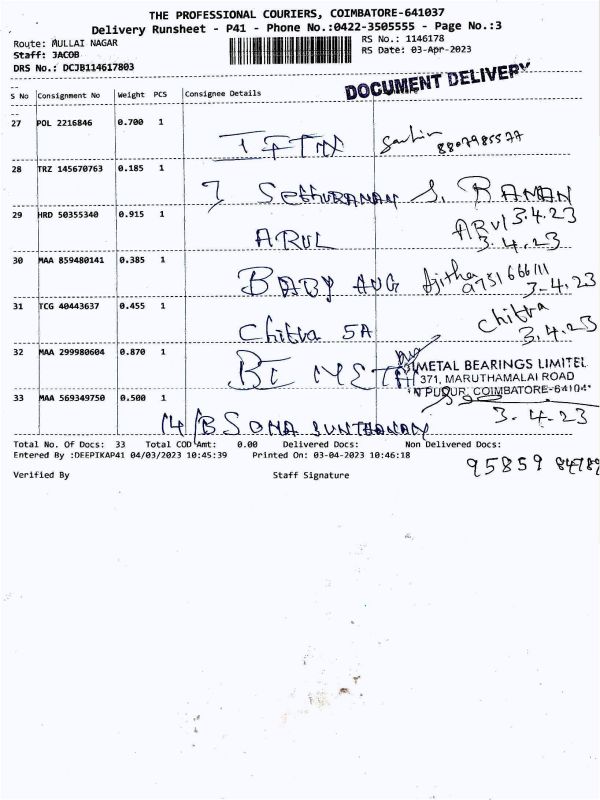 THE PROFESSIONAL COURIERS, COIMBATORE-641037
Delivery Runsheet - P41 - Phone No.:0422-3505555 - Page No.:3
Route: MULLAI NAGAR
RS No.: 1146178
Staff: JACOB
RS Date: 03-Apr-2023
DRS No.: DCJB114617803
DOCUMENT DELIVERY
S No Consignment No Weight PCS Consignee Details
27 POL 2216846 0.700 1
8807985577
28 TRZ 145670763 0.185 1
SethURAMAN S. RAMAN
3.4.23
29 HRD 50355340 0.915 1
ARUL ARUl
3.4.23
30 MAA 859480141 0.385 1
BABY AUG Ajitha
9751666111
3-4.23
31 TCG 40443637 0.455 1
Chitra 5A Chitra
3.4.23
32 MAA 299980604 0.870 1
METAL BEARINGS LIMITED
371, MARUTHAMALAI ROAD
COIMBATORE-641041
33 MAA 569349750 0.500 1
14/B SONA
3.4.23
Total No. Of Docs: 33 Total COD Amt: 0.00 Delivered Docs: Non Delivered Docs:
Entered By :DEEPIKAP41 04/03/2023 10:45:39 Printed On: 03-04-2023 10:46:18
95859 84789
Verified By Staff Signature